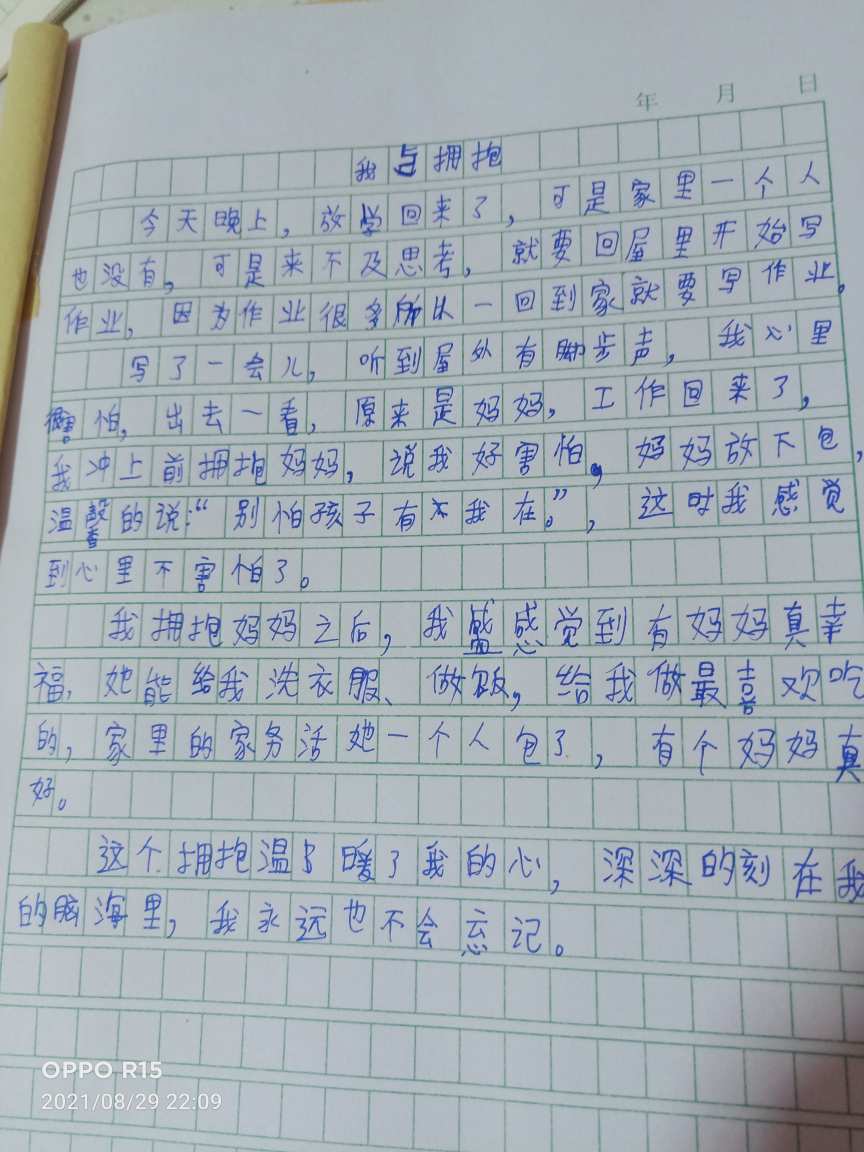 年 月 日
我与拥抱
今天晚上，放学回来了，可是家里一个人
也没有，可是来不及思考，就要回屋里开始写
作业，因为作业很多所以一回到家就要写作业。
写了一会儿，听到屋外有脚步声，我心里
很害怕，出去一看，原来是妈妈，工作回来了，
我冲上前拥抱妈妈，说我好害怕，妈妈放下包，
温馨的说：“别怕孩子有我在。”，这时我感觉
到心里不害怕了。
我拥抱妈妈之后，我感觉到有妈妈真幸
福，她能给我洗衣服、做饭，给我做最喜欢吃
的，家里的家务活她一个人包了，有个妈妈真
好。
这个拥抱温暖了我的心，深深的刻在我
的脑海里，我永远也不会忘记。
OPPO R15
2021/08/29 22:09